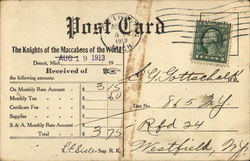 Post Card
The Knights of the Maccabees of the World
AUG 19 1913
Detroit, Mich.
Received of
the following amounts:
On Monthly Rate Account $ 3 15
Monthly Tax $ 60
Certificate Fee $
Supplies $
S. & A. Monthly Rate Account $
Total $ 3 75
Sup. R. K.
S. G. Gottschalk
Tent No. 865 NY
Rfd 24
Westfield, NY